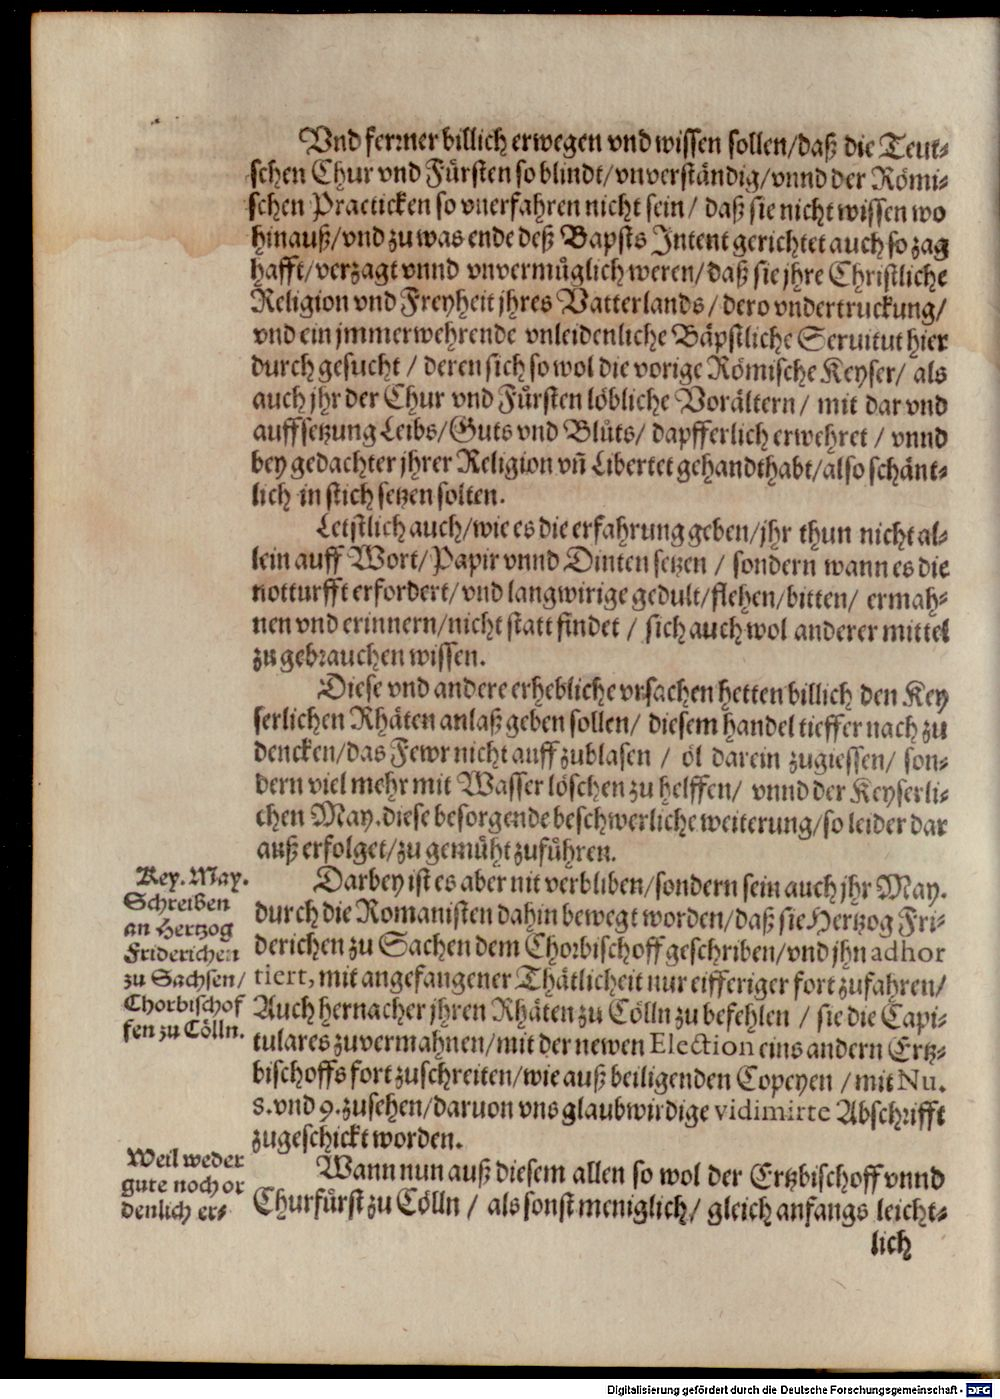 Vnd fermer billich erwegen vnd wissen sollen/daß die Teut-
schen Chur vnd Fürsten so blindt/vnverständig/vnnd der Römi-
schen Practicken so vnerfahren nicht sein/ daß sie nicht wissen wo
hinauß/vnd zu was ende deß Bapsts Intent gerichtet auch so zag
hafft/verzagt vnnd vnvermüglich weren/daß sie jhre Christliche
Religion vnd Freyheit jhres Vatterlands/dero vndertruckung/
vnd ein jmmerwehrende vnleidenliche Bäpstliche Seruitut hier
durch gesucht / deren sich so wol die vorige Römische Keyser/ als
auch jhr der Chur vnd Fürsten löbliche Vorältern/ mit dar vnd
auffsetzung Leibs/Guts vnd Blůts/ dapfferlich erwehret / vnnd
bey gedachter jhrer Religion vñ Libertet gehandthabt/also schänt-
lich in stich setzen solten.
Letstlich auch/wie es die erfahrung geben/jhr thun nicht al-
lein auff Wort/Papir vnnd Dinten setzen / sondern wann es die
notturfft erfordert/vnd langwirige gedult/flehen/bitten/ ermah-
nen vnd erinnern/nicht statt findet / sich auch wol anderer mittel
zu gebrauchen wissen.
Diese vnd andere erhebliche vrsachen hetten billich den Key
serlichen Rhäten anlaß geben sollen/ diesem handel tieffer nach zu
dencken/das Fewr nicht auff zublasen / öl darein zugiessen/ son-
dern viel mehr mit Wasser löschen zu helffen/ vnnd der Keyserli-
chen May. diese besorgende beschwerliche weiterung/so leider dar
auß erfolget/zu gemüht zuführen.
Key. May.
Schreiben
an Hertzog
Friderichen
zu Sachsen/
Chorbischof
fen zu Cölln.
Darbey ist es aber nit verbliben/sondern sein auch jhr May.
durch die Romanisten dahin bewegt worden/daß sie Hertzog Fri-
derichen zu Sachen dem Chorbischoff geschriben/vnd jhn adhor
tiert, mit angefangener Thätlicheit nur eifferiger fort zufahren/
Auch hernacher jhren Rhäten zu Cölln zu befehlen / sie die Capi-
tulares zuvermahnen/mit der newen Election eins andern Ertz-
bischoffs fort zuschreiten/wie auß beiligenden Copeyen /mit Nu.
8. vnd 9. zusehen/daruon vns glaubwirdige vidimirte Abschrifft
zugeschickt worden.
Weil weder
gute noch or
denlich er-
Wann nun auß diesem allen so wol der Ertzbischoff vnnd
Churfürst zu Cölln / als sonst meniglich/ gleich anfangs leicht-
lich
Digitalisierung gefördert durch die Deutsche Forschungsgemeinschaft - DFG